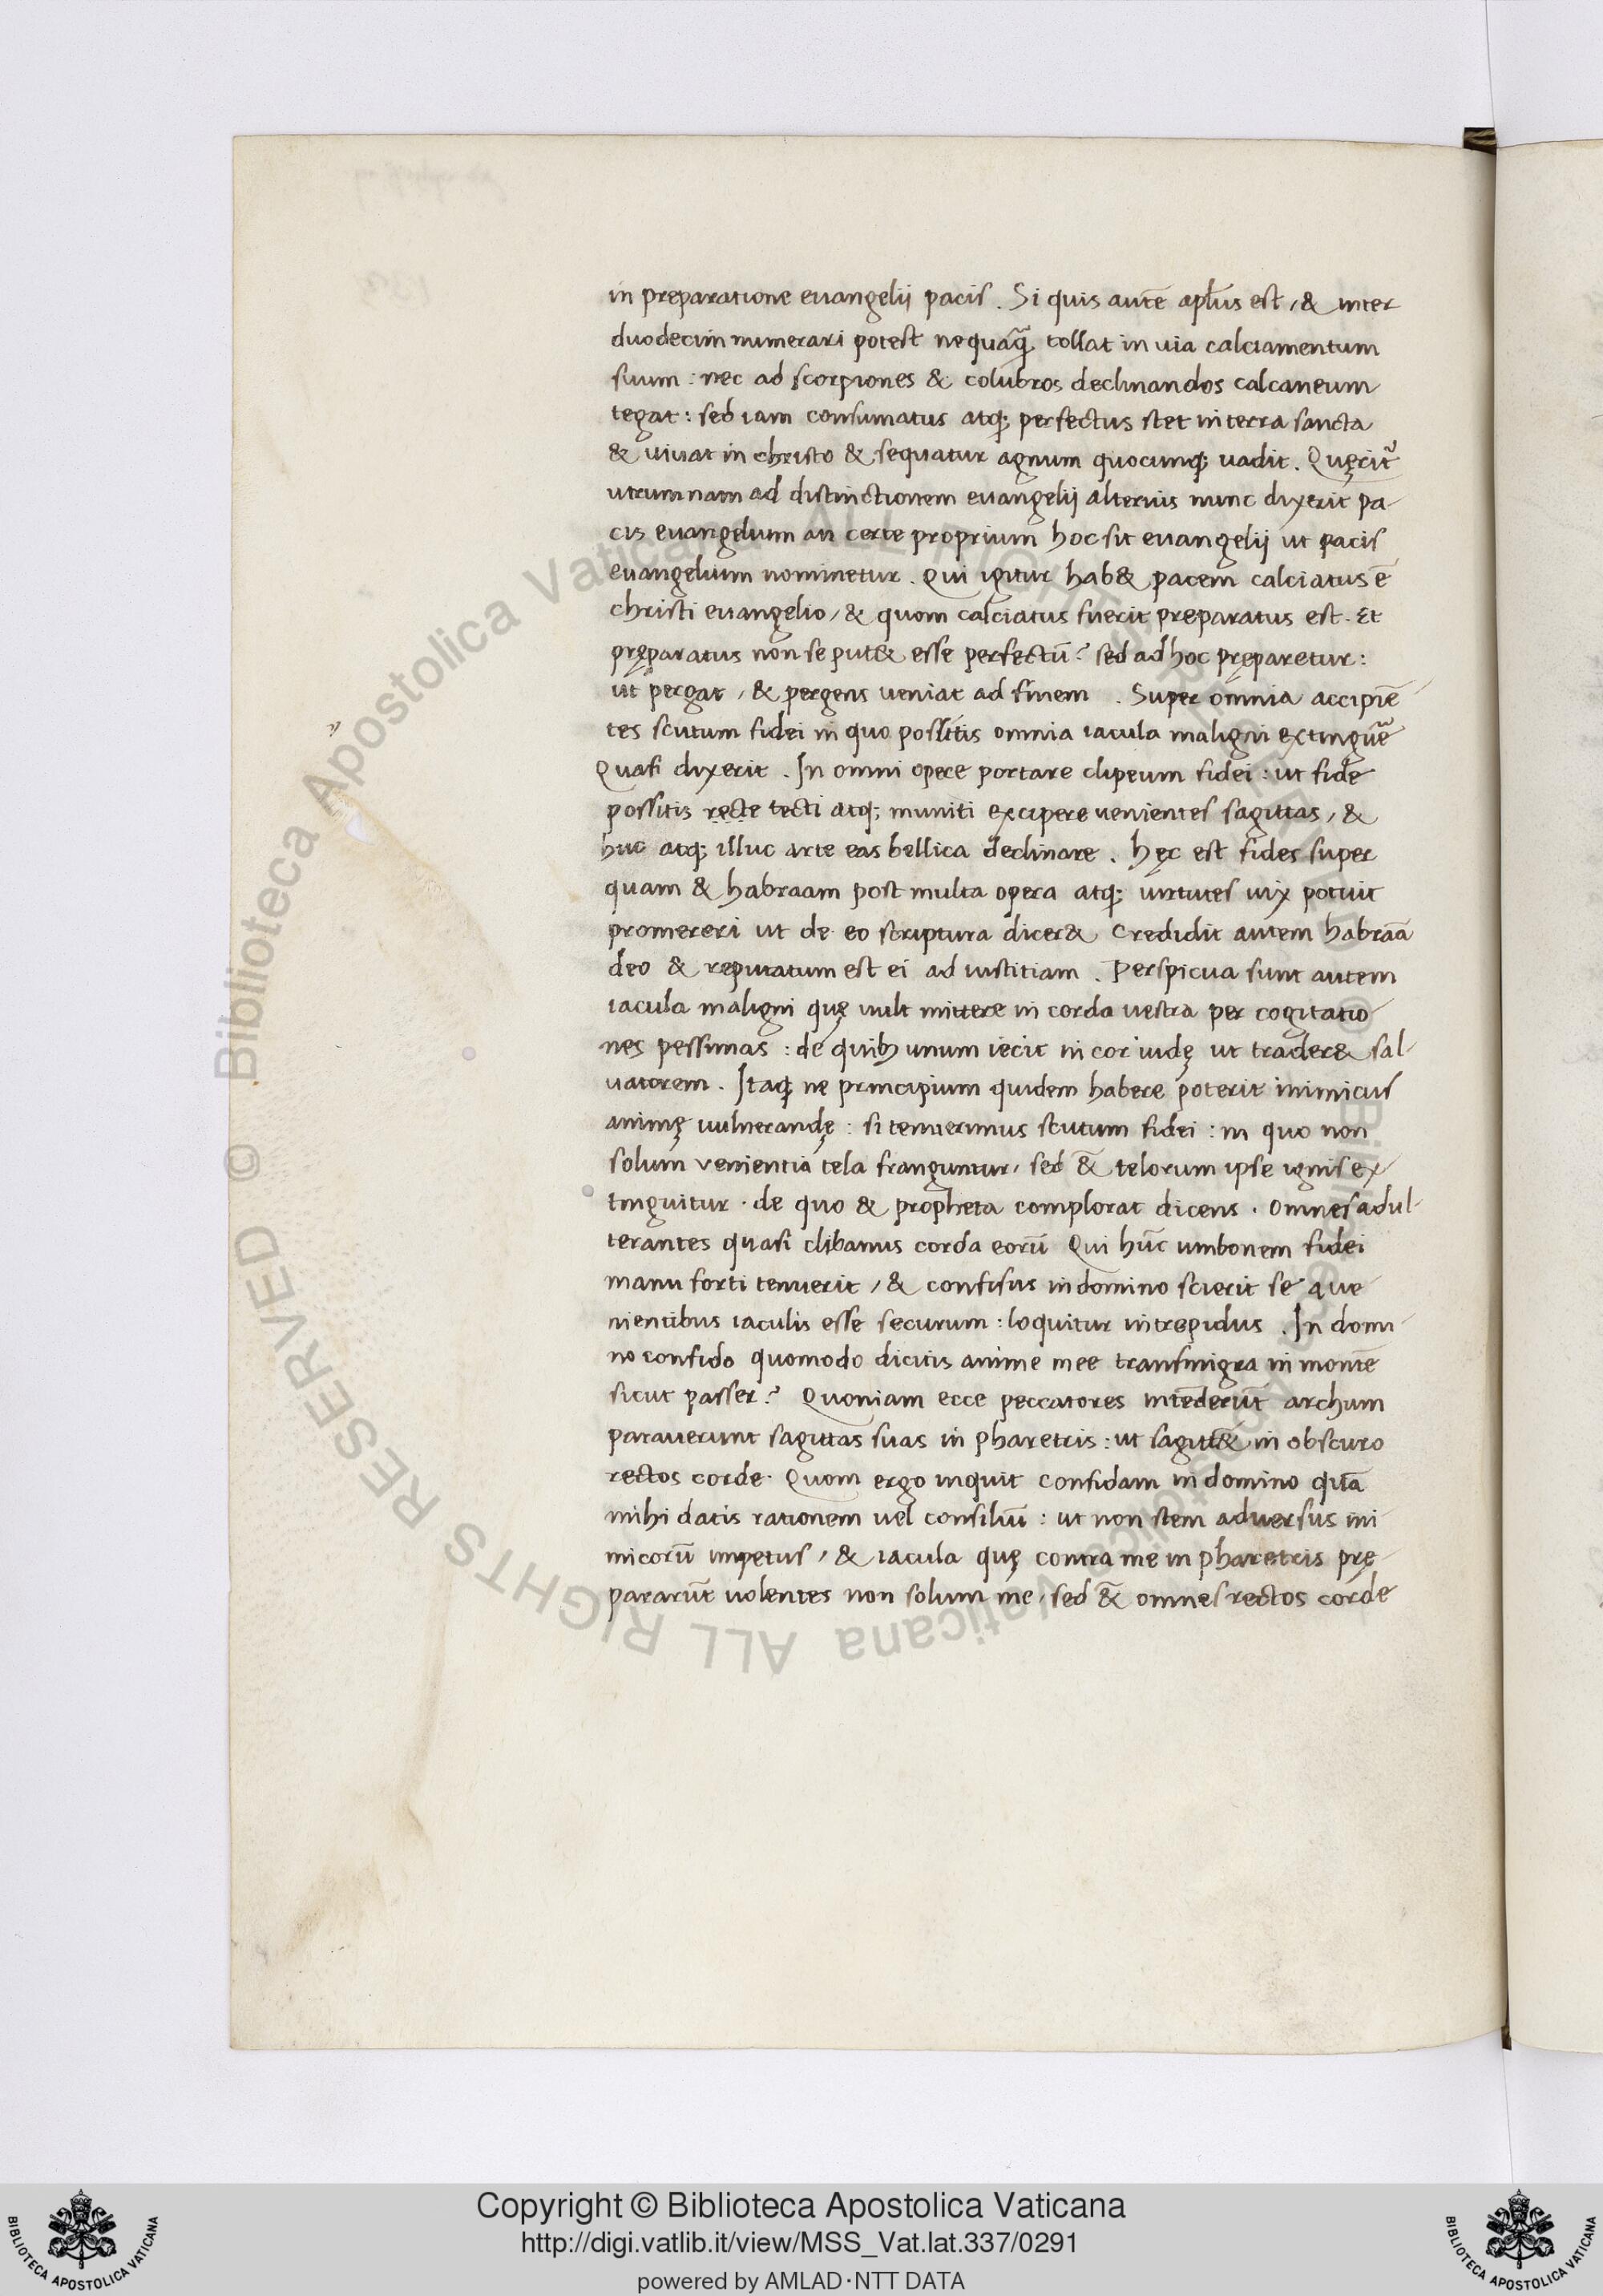 in preparatione euangelij pacis . Si quis autē apl̄us est , & inter
duodecim numerari potest nequaq̄ tollat in uia calciamentum
suum : nec ad scorpiones & colubros declinandos calcaneum
tegat : sed iam consumatus atq; perfectus stet in terra sancta
& uiuat in christo & sequatur agnum quocunq; uadit . Quęrit᷑
utrumnam ad distinctionem euangelij alterius nunc dixerit pa-
cis euangelium an certe proprium hoc sit euangelij ut pacis
euangelium nominetur . Qui igitur hab& pacem calciatus ē
christi euangelio , & quom calciatus fuerit preparatus est . Et
pręparatus non se put& esse perfectū ? sed ad hoc pręparetur :
ut pergat , & pergens ueniat ad finem . Super omnia accipiē
tes scutum fidei in quo possitis omnia iacula maligni extinguẽ
Quasi dixerit . In omni opere portare clipeum fidei : ut fide
possitis recte tecti atq; muniti excipere uenientes sagittas , &
huc atq; illuc arte eas bellica declinare . Hęc est fides super
quam & habraam post multa opera atq; uirtutes uix potuit
promereri ut de eo scriptura dicer& Credidit autem habraā
deo & reputatum est ei ad iustitiam . Perspicua sunt autem
iacula maligni quę uult mittere in corda uestra per cogitatio
nes pessimas : de quib; unum iecit in cor iudę ut trader& sal-
uatorem . Itaq; ne principium quidem habere poterit inimicus
animę uulnerandę : si tenuerimus scutum fidei : in quo non
solum venientia tela franguntur , sed &̄ telorum ipse ignis ex
tinguitur . de quo & propheta complorat dicens . Omnes adul-
terantes quasi clibanus corda eorū Qui hūc umbonem fidei
manu forti tenuerit , & confisus in domino scierit se a ue
nientibus iaculis esse securum : loquitur intrepidus . In domi
no confido quomodo dicitis anime mee transmigra in montē
sicut passer ? Quoniam ecce peccatores intēderūt archum
parauerunt sagittas suas in pharetris : ut sagitt& in obscuro
rectos corde . Quom ergo inquit confidam in domino qūta
mihi datis rationem uel consiliū : ut non stem aduersus ini
micorū impetus , & iacula quę contra me in pharetris prę
pararūt uolentes non solum me , sed &̄ omnes rectos corde
Copyright © Biblioteca Apostolica Vaticana
http://digi.vatlib.it/view/MSS_Vat.lat.337/0291
powered by AMLAD·NTT DATA
BIBLIOTECA APOSTOLICA VATICANA
BIBLIOTECA APOSTOLICA VATICANA
© Biblioteca Apostolica Vaticana ALL RIGHTS RESERVED
© Biblioteca Apostolica Vaticana ALL RIGHTS RESERVED